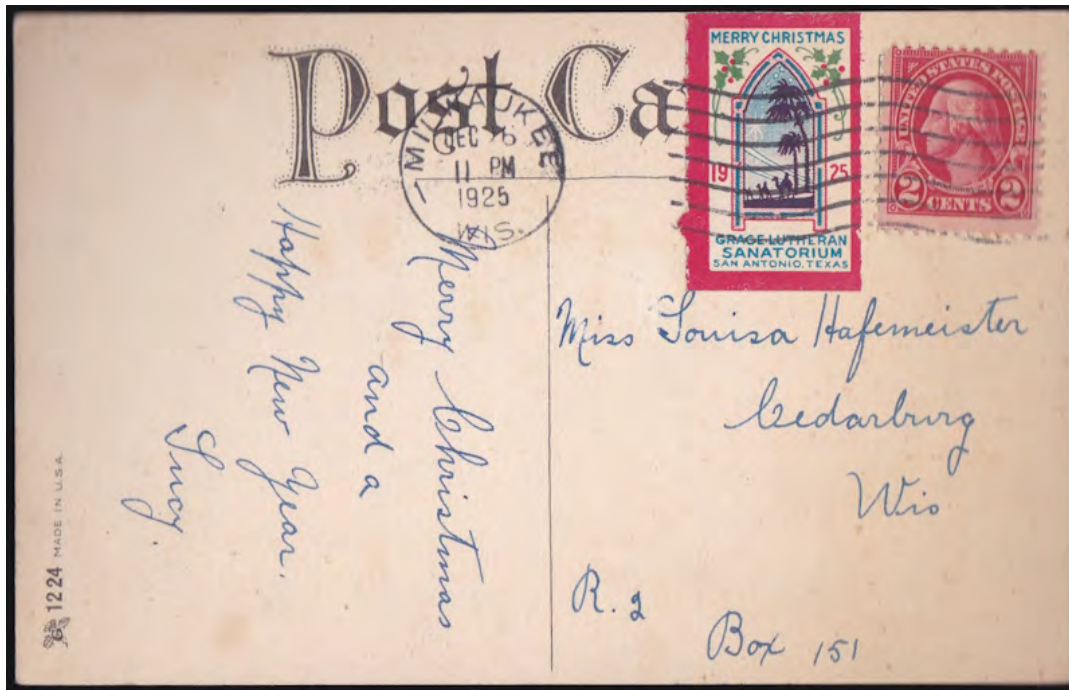 Post Ca
MILWAUKEE
DEC
11 PM
1925
WIS.
MERRY CHRISTMAS
19 25
GRACE LUTHERAN
SANATORIUM
SAN ANTONIO, TEXAS
UNITED STATES POSTAGE
2 CENTS 2
Merry Christmas
and a
Happy New Year.
Lucy.
Miss Louisa Hafemeister
Cedarburg
Wis
R. 2
Box 151
1224 MADE IN U.S.A.